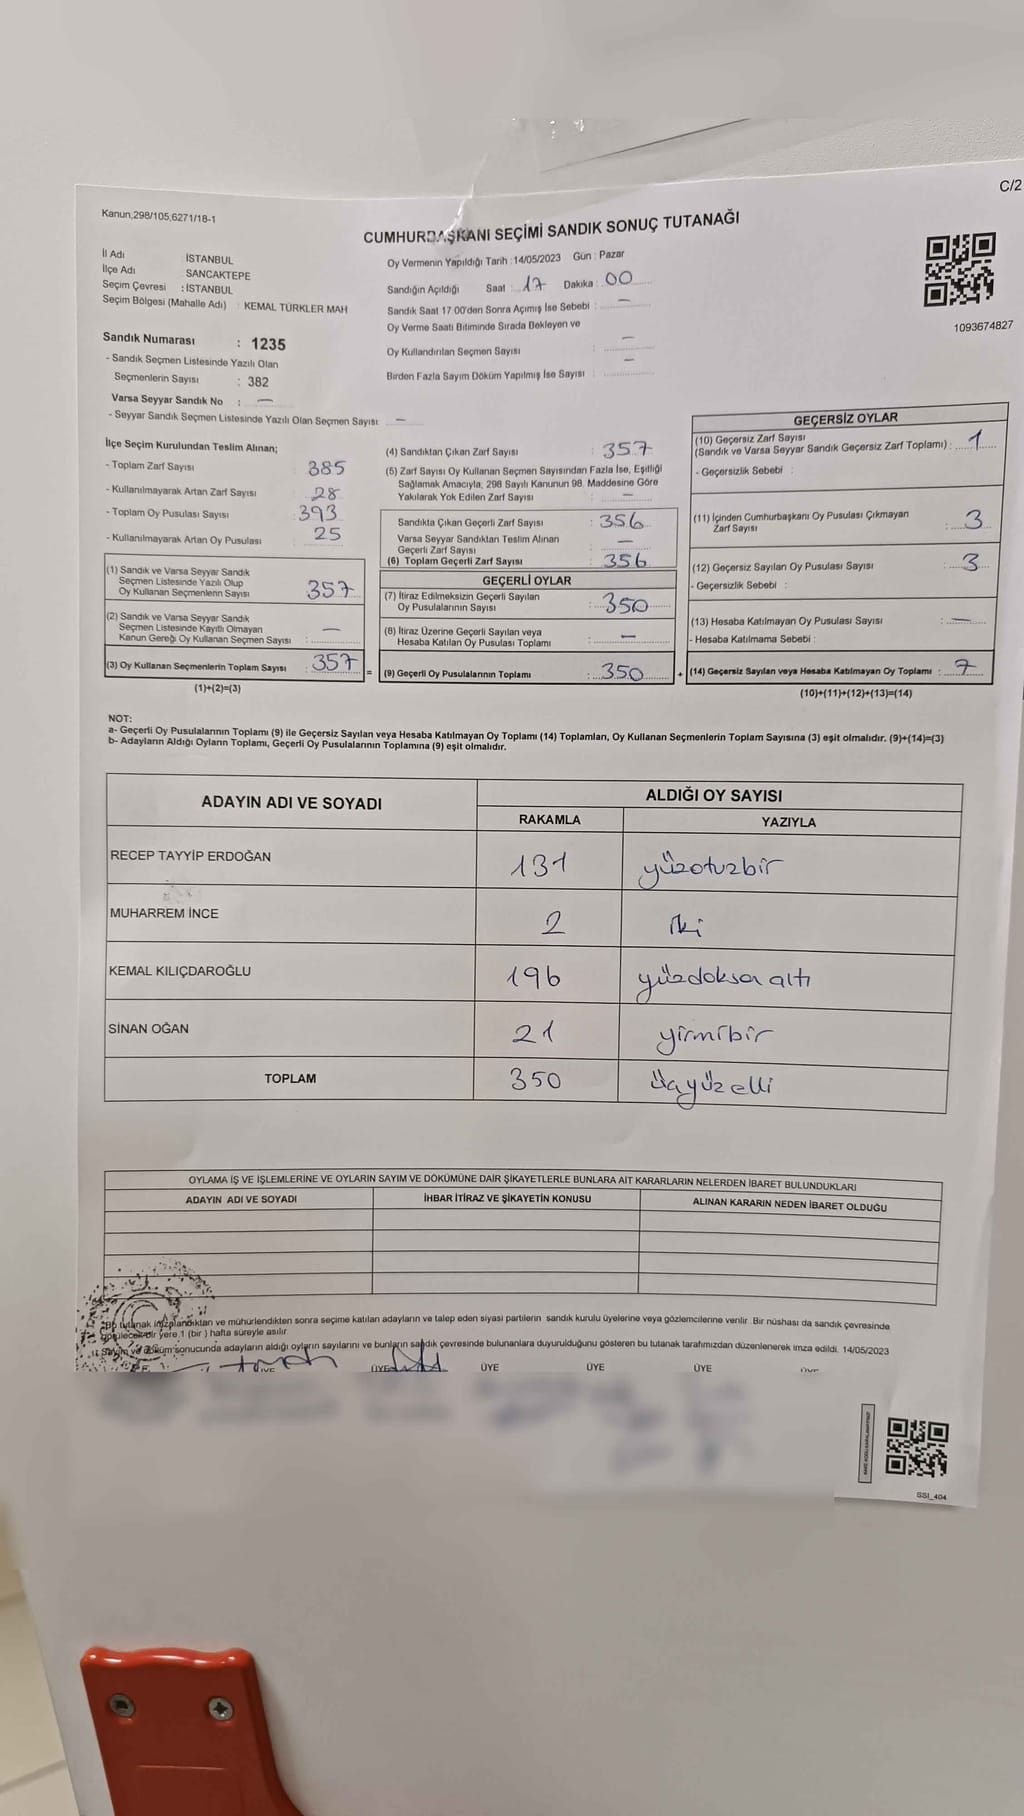 C/2
Kanun;298/105;6271/18-1
CUMHURBAŞKANI SEÇİMİ SANDIK SONUÇ TUTANAĞI
İl Adı İSTANBUL
İlçe Adı SANCAKTEPE
Seçim Çevresi : İSTANBUL
Seçim Bölgesi (Mahalle Adı) : KEMAL TÜRKLER MAH
Sandık Numarası : 1235
- Sandık Seçmen Listesinde Yazılı Olan
Seçmenlerin Sayısı : 382
Varsa Seyyar Sandık No : —
- Seyyar Sandık Seçmen Listesinde Yazılı Olan Seçmen Sayısı: —
Oy Vermenin Yapıldığı Tarih : 14/05/2023 Gün : Pazar
Sandığın Açıldığı Saat : 17 Dakika : 00
Sandık Saat 17 00'den Sonra Açımış İse Sebebi : —
Oy Verme Saati Bitiminde Sırada Bekleyen ve
Oy Kullandırılan Seçmen Sayısı : —
Birden Fazla Sayım Döküm Yapılmış İse Sayısı : —
1093674827
İlçe Seçim Kurulundan Teslim Alınan;
- Toplam Zarf Sayısı : 385
- Kullanılmayarak Artan Zarf Sayısı : 28
- Toplam Oy Pusulası Sayısı : 393
- Kullanılmayarak Artan Oy Pusulası : 25
(1) Sandık ve Varsa Seyyar Sandık
Seçmen Listesinde Yazılı Olup
Oy Kullanan Seçmenlerin Sayısı : 357
(2) Sandık ve Varsa Seyyar Sandık
Seçmen Listesinde Kayıtlı Olmayan
Kanun Gereği Oy Kullanan Seçmen Sayısı : —
(3) Oy Kullanan Seçmenlerin Toplam Sayısı : 357
(1)+(2)=(3)
=
(4) Sandıktan Çıkan Zarf Sayısı : 357
(5) Zarf Sayısı Oy Kullanan Seçmen Sayısından Fazla İse, Eşitliği
Sağlamak Amacıyla, 298 Sayılı Kanunun 98. Maddesine Göre
Yakılarak Yok Edilen Zarf Sayısı : —
Sandıkta Çıkan Geçerli Zarf Sayısı : 356
Varsa Seyyar Sandıktan Teslim Alınan
Geçerli Zarf Sayısı : —
(6) Toplam Geçerli Zarf Sayısı : 356
GEÇERLİ OYLAR
(7) İtiraz Edilmeksizin Geçerli Sayılan
Oy Pusulalarının Sayısı : 350
(8) İtiraz Üzerine Geçerli Sayılan veya
Hesaba Katılan Oy Pusulası Toplamı : —
(9) Geçerli Oy Pusulalarının Toplamı : 350
+
GEÇERSİZ OYLAR
(10) Geçersiz Zarf Sayısı
(Sandık ve Varsa Seyyar Sandık Geçersiz Zarf Toplamı) : 1
- Geçersizlik Sebebi :
(11) İçinden Cumhurbaşkanı Oy Pusulası Çıkmayan
Zarf Sayısı : 3
(12) Geçersiz Sayılan Oy Pusulası Sayısı : 3
- Geçersizlik Sebebi :
(13) Hesaba Katılmayan Oy Pusulası Sayısı : —
- Hesaba Katılmama Sebebi :
(14) Geçersiz Sayılan veya Hesaba Katılmayan Oy Toplamı : 7
(10)+(11)+(12)+(13)=(14)
NOT:
a- Geçerli Oy Pusulalarının Toplamı (9) ile Geçersiz Sayılan veya Hesaba Katılmayan Oy Toplamı (14) Toplamları, Oy Kullanan Seçmenlerin Toplam Sayısına (3) eşit olmalıdır. (9)+(14)=(3)
b- Adayların Aldığı Oyların Toplamı, Geçerli Oy Pusulalarının Toplamına (9) eşit olmalıdır.
ADAYIN ADI VE SOYADI ALDIĞI OY SAYISI
RAKAMLA YAZIYLA
RECEP TAYYİP ERDOĞAN 131 yüzotuzbir
MUHARREM İNCE 2 iki
KEMAL KILIÇDAROĞLU 196 yüzdoksan altı
SİNAN OĞAN 21 yirmibir
TOPLAM 350 üçyüzelli
OYLAMA İŞ VE İŞLEMLERİNE VE OYLARIN SAYIM VE DÖKÜMÜNE DAİR ŞİKAYETLERLE BUNLARA AİT KARARLARIN NELERDEN İBARET BULUNDUKLARI
ADAYIN ADI VE SOYADI İHBAR İTİRAZ VE ŞİKAYETİN KONUSU ALINAN KARARIN NEDEN İBARET OLDUĞU
Bu tutanak imzalandıktan ve mühürlendikten sonra seçime katılan adayların ve talep eden siyasi partilerin sandık kurulu üyelerine veya gözlemcilerine verilir. Bir nüshası da sandık çevresinde
görülecek bir yere 1 (bir ) hafta süreyle asılır.
Sayım ve döküm sonucunda adayların aldığı oyların sayılarını ve bunların sandık çevresinde bulunanlara duyurulduğunu gösteren bu tutanak tarafımızdan düzenlenerek imza edildi. 14/05/2023
ÜYE ÜYE ÜYE ÜYE ÜYE
SSI_404